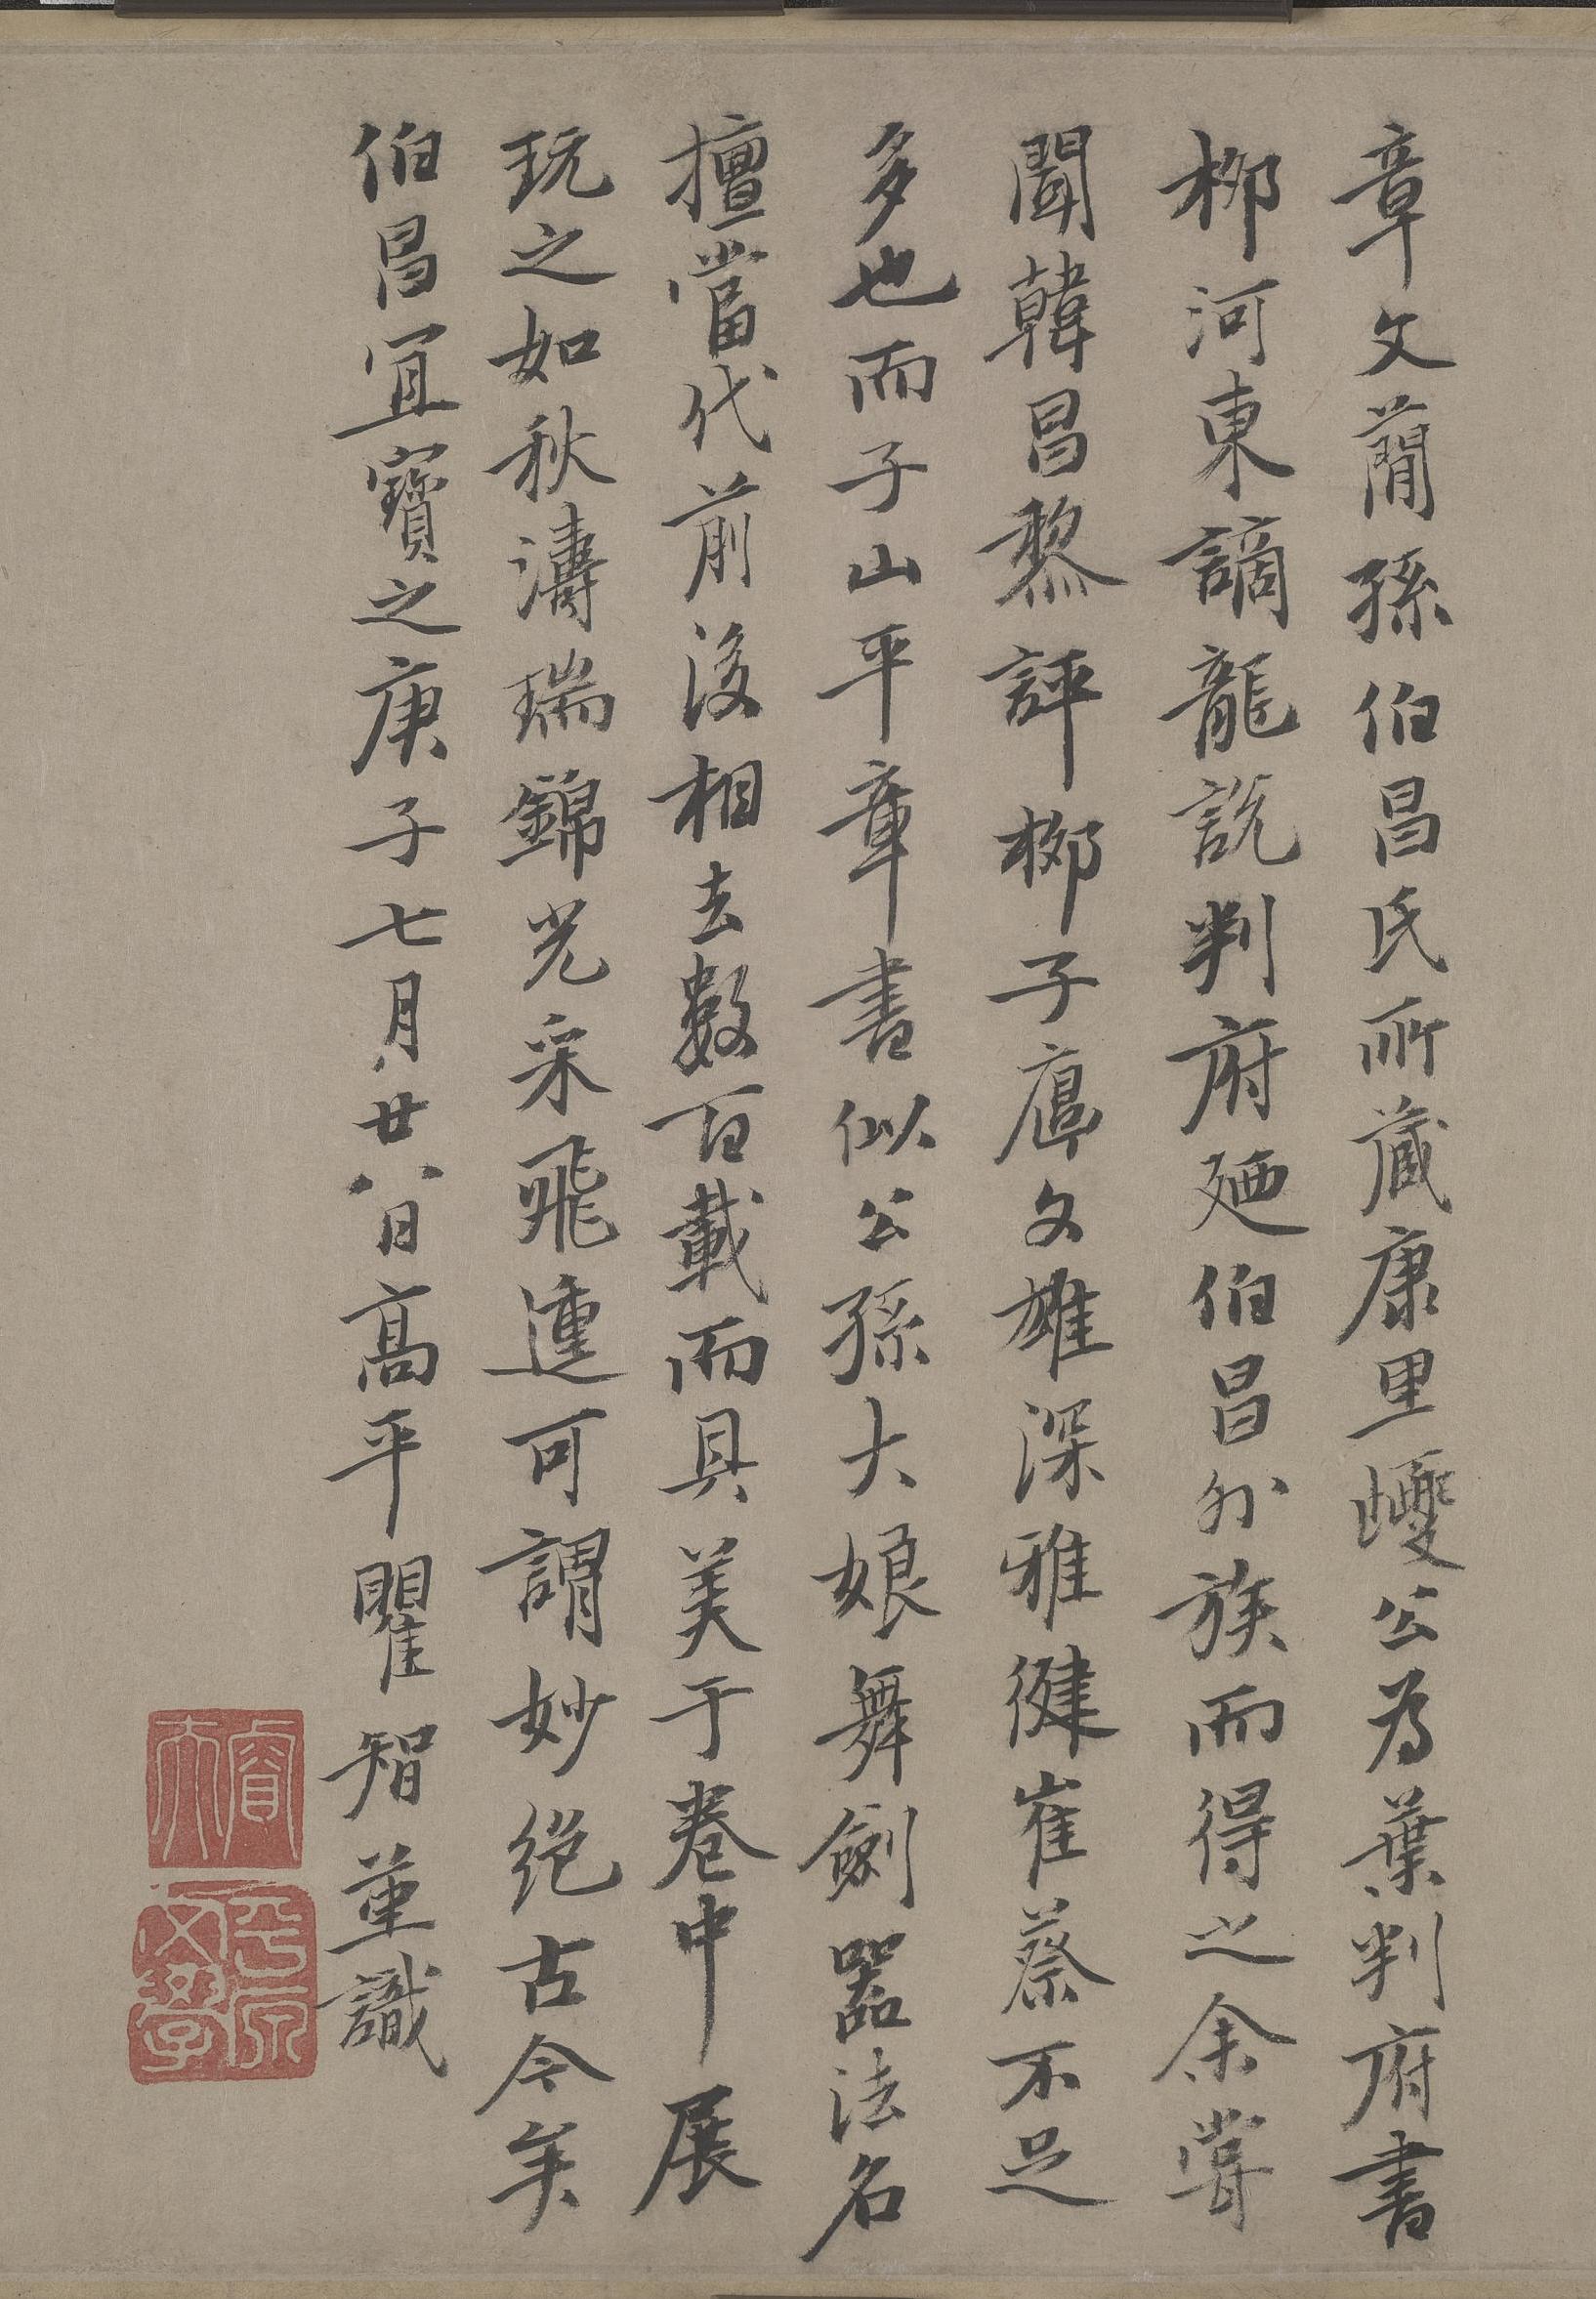 章文蕳孫伯昌氏所藏康里巙公為葉判府書
栁河東謫龍說判府廼伯昌外族而得之余甞
聞韓昌黎評栁子厚文雄深雅健崔蔡不足
多也而子山平章書似公孫大娘舞劍器法名
擅當代前後相去數百載而具美于卷中展
玩之如秋濤瑞錦光采飛運可謂妙絕古今矣
伯昌宜寶之庚子七月廿八日高平瞿智堇識
睿夫